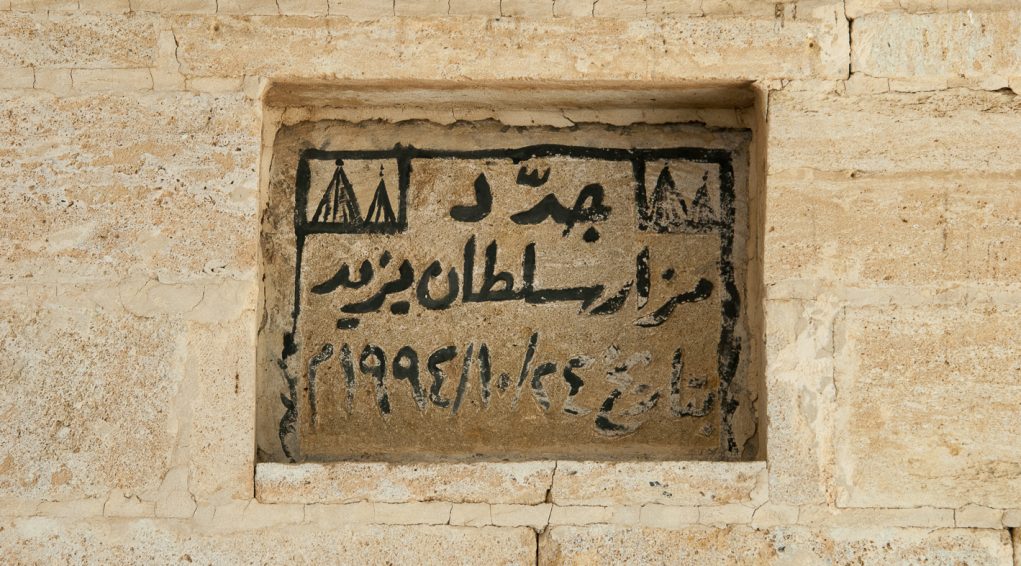 جدّد
مزار سلطان يزيد
بتاريخ ٢٤/١٠/١٩٩٤م